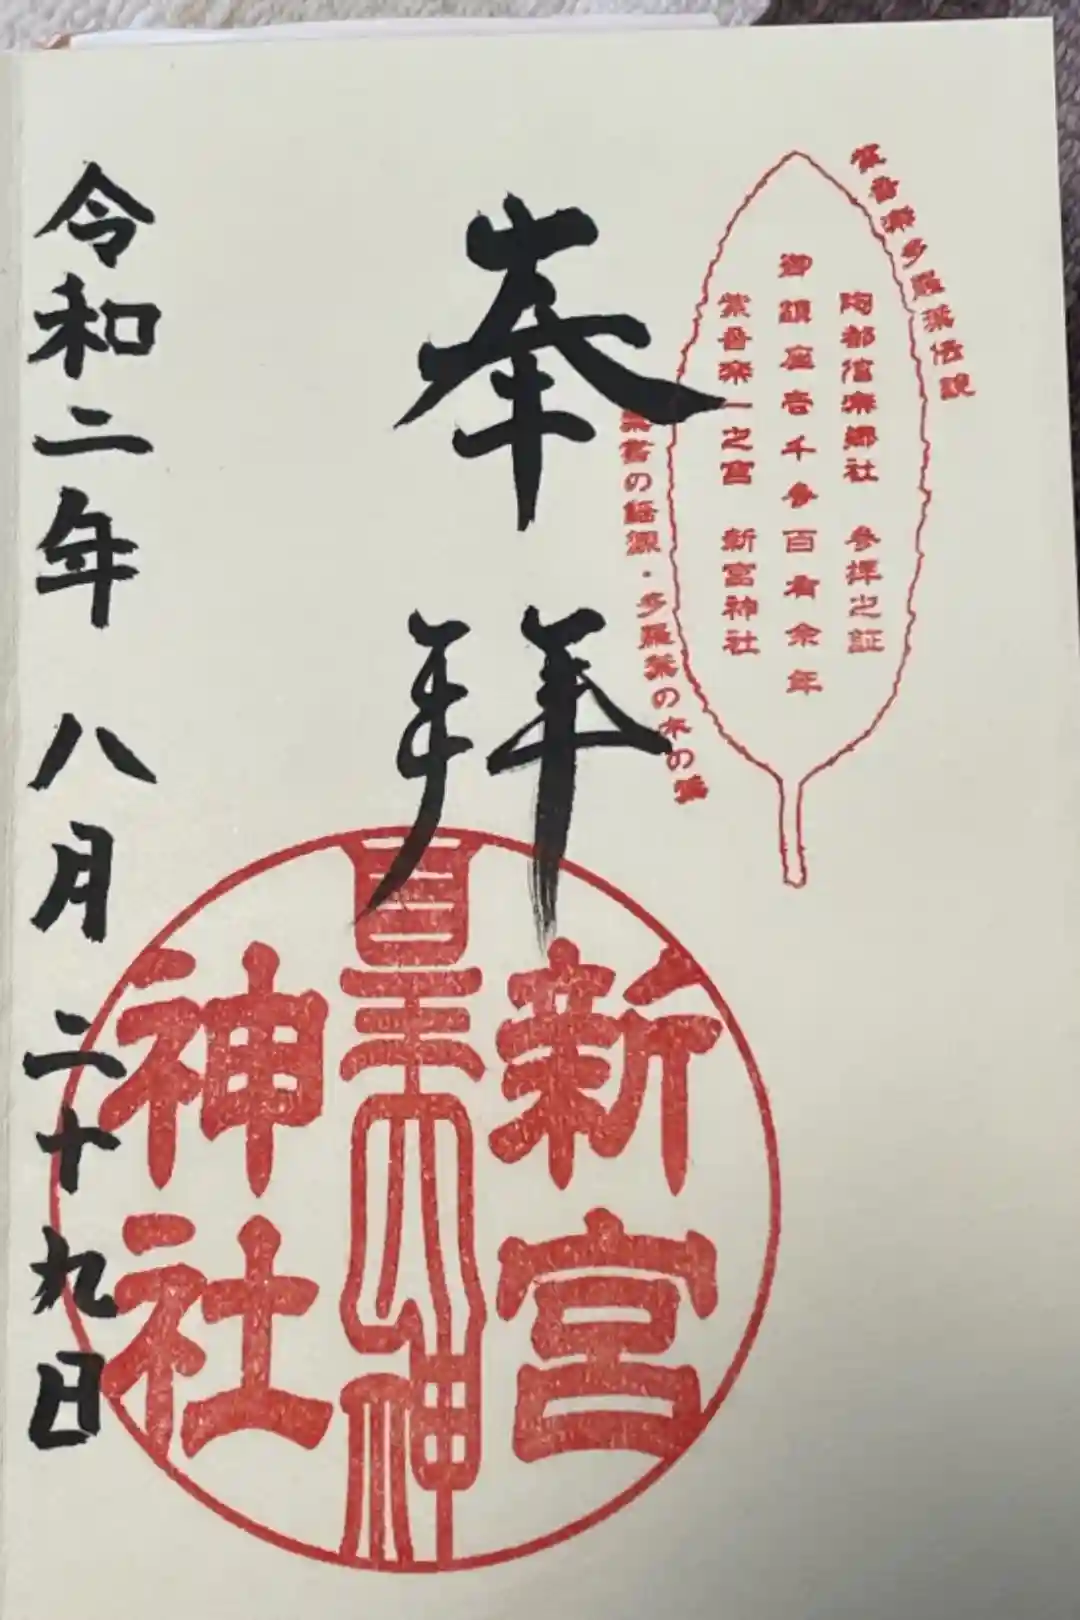 紫香楽多羅葉伝説
陶都信楽郷社　参拝之証
御鎮座壱千参百有余年
紫香楽一之宮　新宮神社
葉書の語源・多羅葉の木の葉
奉拝
新宮
神社
令和二年　八月　二十九日